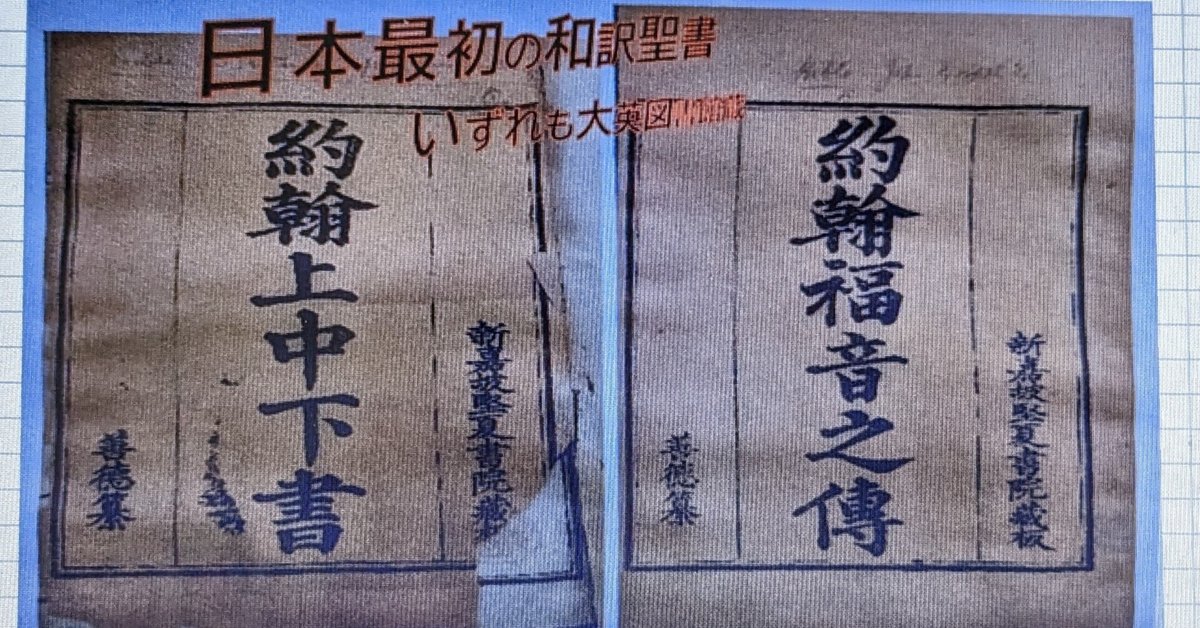 日本最初の和訳聖書
いずれも大英図書館蔵
約翰上中下書
新嘉坡堅夏書院蔵板
善徳纂
約翰福音之傳
新嘉坡堅夏書院蔵板
善徳纂